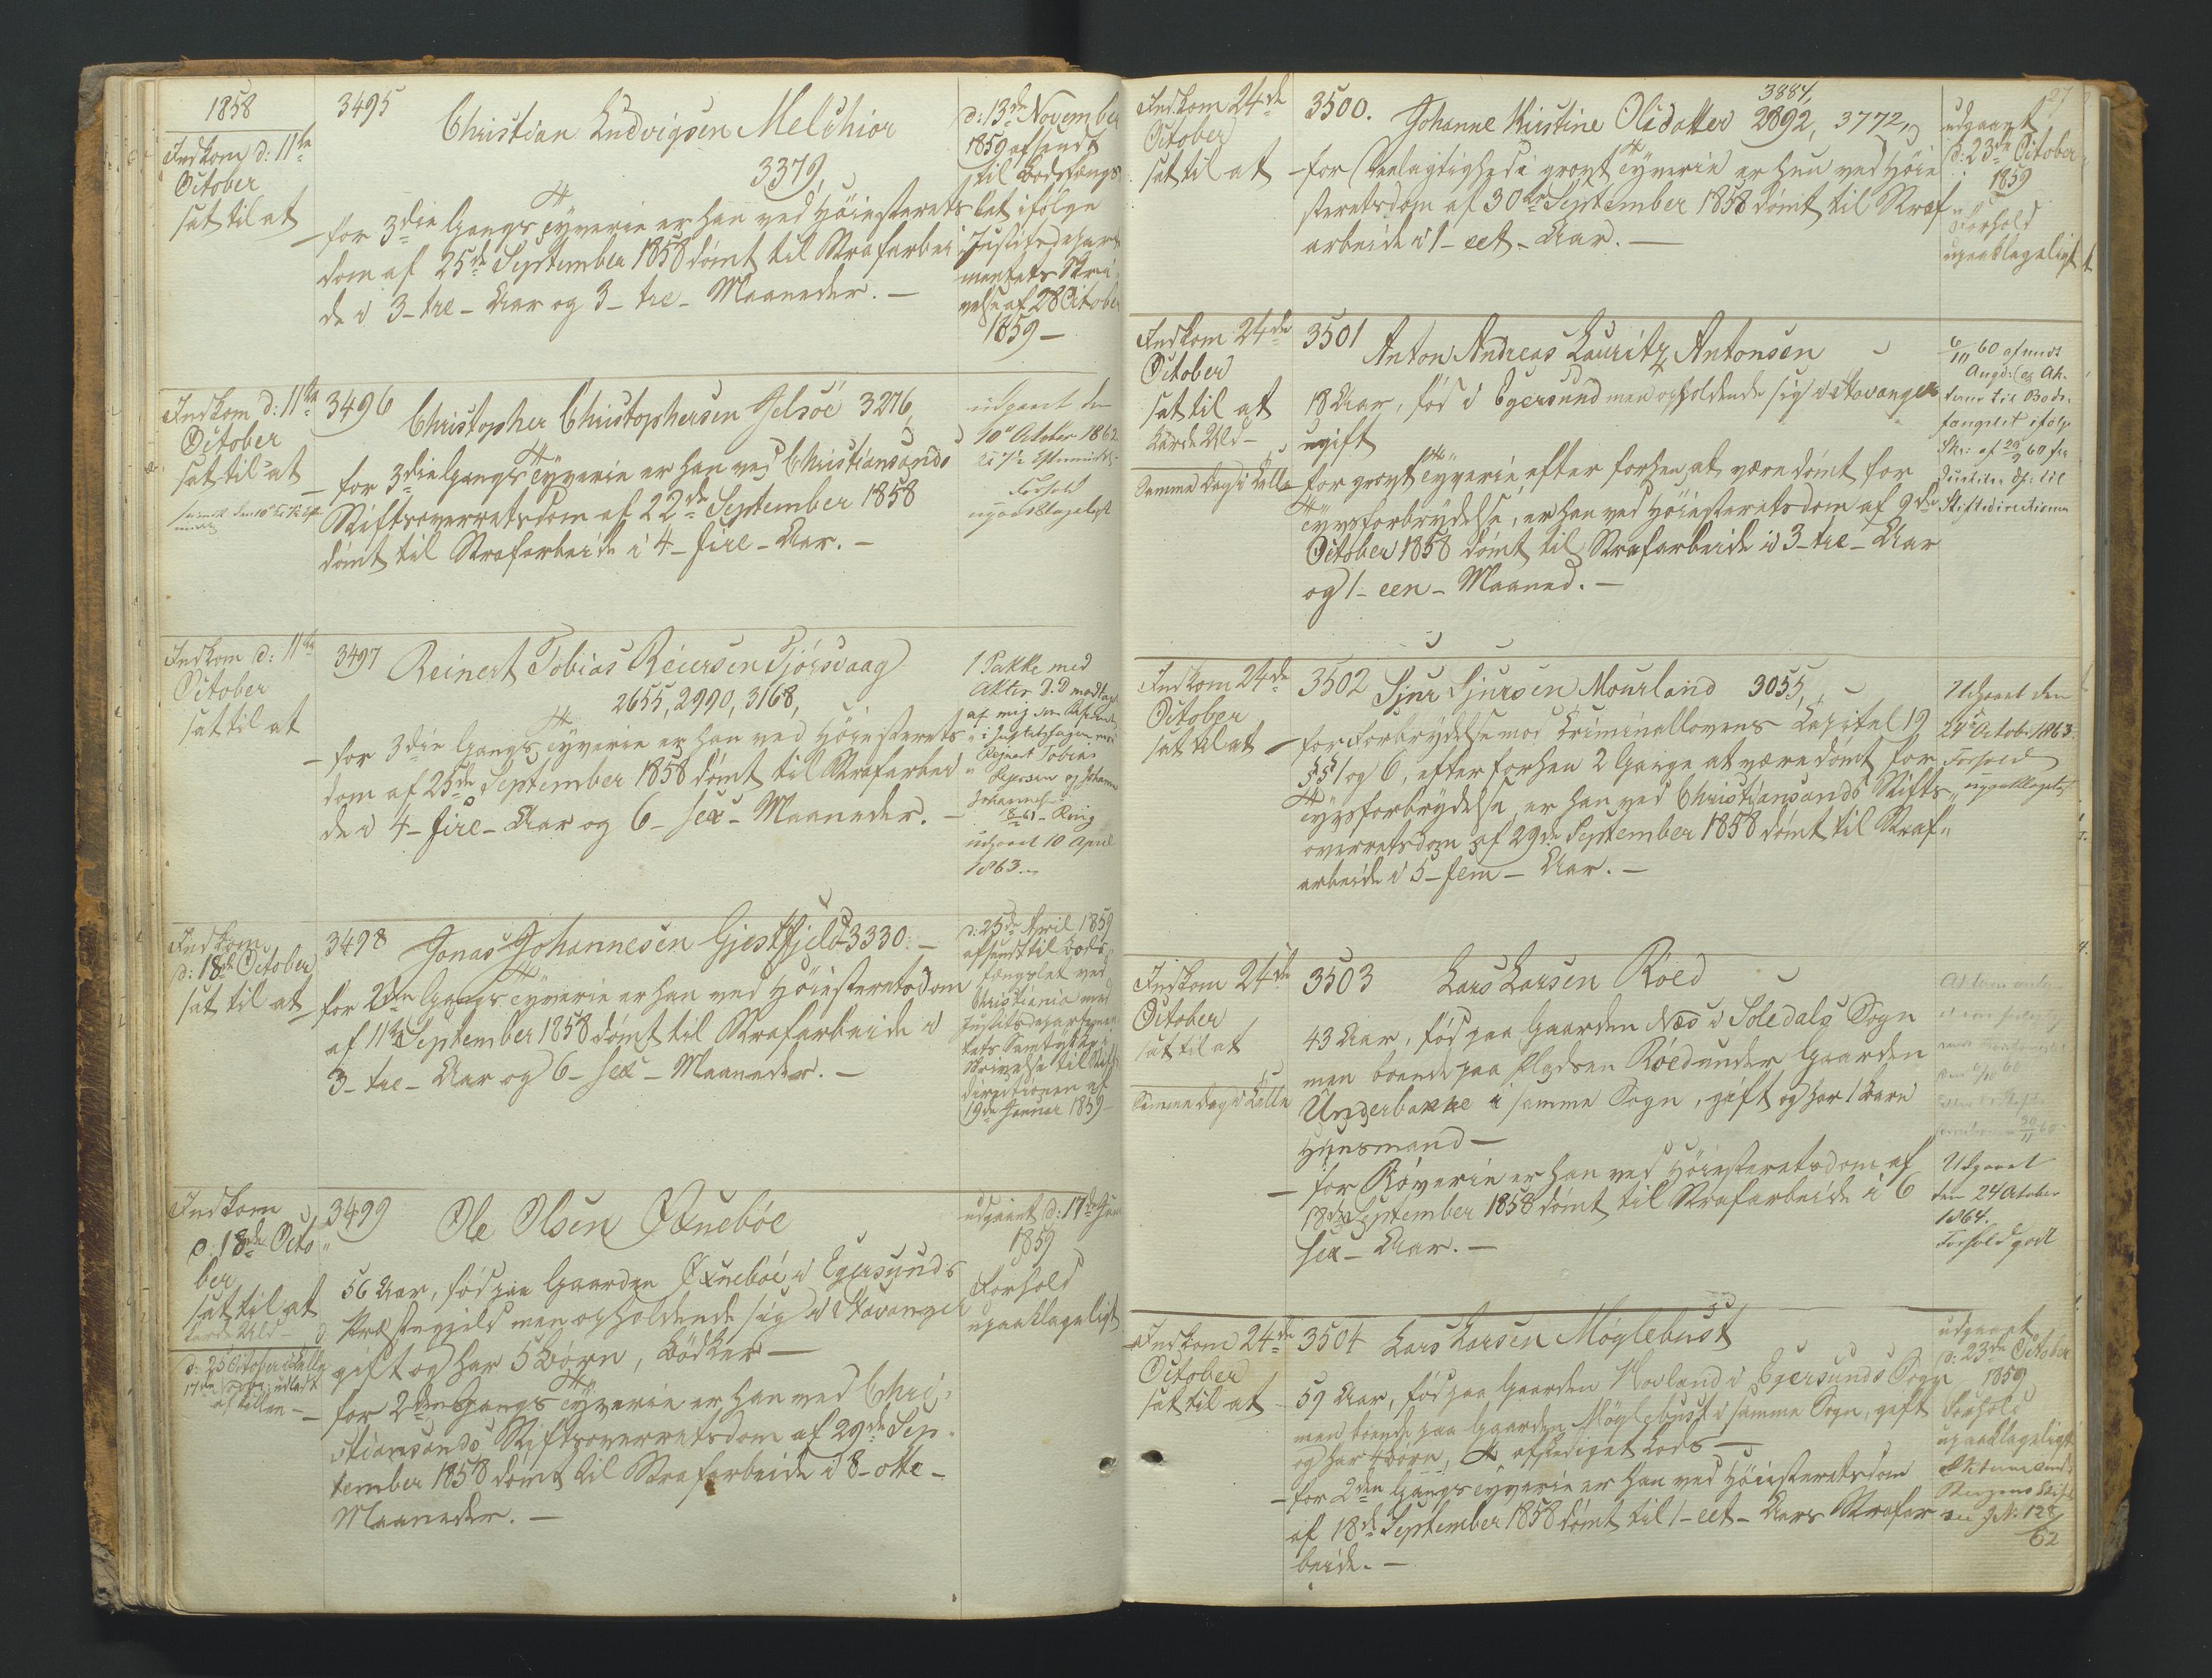 1858
Indkom d: 11te
October
sat til at
3495
Christian Ludvigsen Melchior
3379,
– for 3die Gangs Tyverie er han ved Høiesterets
dom af 25de September 1858 dømt til Strafarbei
de i 3 – tre – Aar og 3 – tre – Maaneder. –
d: 13de November
1859 afsendt
til Bodsfængs
let ifølge
Justitsdepart
mentets Skri
velse af 28 October
1859 –
Indkom d: 11te
October
sat til at
3496
Christopher Christophersen Jelsøe 3216,
– for 3die Gangs Tyverie er han ved Christiansands
Stiftsoverretsdom af 22de September 1858
dømt til Strafarbeide i 4 – fire – Aar. –
udgaaet den
10de October 1862
Forhold
upaaklageligt
Indkom d: 11te
October
sat til at
3497
Reinert Tobias Reiersen Tjørsvaag
2655, 2990, 3168,
– for 3die Gangs Tyverie er han ved Høiesterets
dom af 25de September 1858 dømt til Strafarbei
de i 4 – fire – Aar og 6 – sex – Maaneder. –
1 Pakke med
Akter D.D modtaget
af mig
Reinert Tobias
Reiersen og Johannes
Johannesen
udgaaet 10 April
1863. –
Indkom
d: 18de October
sat til at
3498
Jonas Johannesen Gjestfjeld 3330. –
– for 2den Gangs Tyverie er han ved Høiesteretsdom
af 11te September 1858 dømt til Strafarbeide i
3 – tre – Aar og 6 – sex – Maaneder. –
d: 25de April 1859
afsendt til Bods
fængslet ved
Christiania med
Justitsdepartemen
tets Samtykke
Skrivelse til Stifts
directionen af
19de Januar 1859 –
Indkom
d. 18de Octo
ber
sat til at
karde Uld –
d: 25 October i Celle
17de udladt
af Cellen –
3499
Ole Olsen Øxnebøe
56 Aar, fød paa Gaarden Øxnebøe i Egersunds
Præstegjeld men opholdende sig i Stavanger
gift og har 5 Børn, Bødker –
– for 2den Gangs Tyverie er han ved Chri-
stiansands Stiftsoverretsdom af 29de Sep-
tember 1858 dømt til Strafarbeide i 8 – otte –
Maaneder. –
udgaaet d: 17de Juni
1859
Forhold
upaaklageligt
27
Indkom 24de
October
sat til at
3500.
Johanne Kirstine Olsdatter 2892, 3772,
3884,
– for Deelagtighed i grovt Tyverie er hun ved Høie
steretsdom af 30te September 1858 dømt til Straf
arbeide i 1 – eet – Aar. –
udgaaet
d: 23de October
1859
Forhold
upaaklageligt
Indkom 24de
October
sat til at
karde Uld –
Samme dag i Celle
3501
Anton Andreas Lauritz Antonsen
18 Aar, fød i Egersund men opholdende sig i Stavanger
ugift
– for grovt Tyverie, efter forhen at være dømt for
Tyvsforbrydelse, er han ved Høiesteretsdom af 9de
October 1858 dømt til Strafarbeide i 3 – tre – Aar
og 1 – een – Maaned. –
6/11 60 afsendt
Angd: Ak.
terne til Bods.
fængslet ifølge
Skr: af 29/9 60 fra
Justits Dp: til
Stiftdirectionen
Indkom 24de
October
sat til at
3502
Sjur Sjursen Mourland 3055,
– for Forbrydelse mod Criminallovens Capitel 19
§§ 1 og 6, efter forhen 2 Gange at være dømt for
Tyvsforbrydelse, er han ved Christiansands Stifts
overretsdom af 29de September 1858 dømt til Straf
arbeide i 5 – fem – Aar. –
Udgaaet den
24de Octob. 1863.
Forhold
upaaklageligt
Indkom 24de
October
sat til at
Samme dag i Celle
3503
Lars Larsen Røed
43 Aar, fød paa Gaarden Næs i Soledals Sogn
men boende paa Pladsen Røed under Gaarden
Underbakke i samme Sogn, gift og har 1 Barn
Huusmand –
– for Røverie er han ved Høiesteretsdom af
18de September 1858 dømt til Strafarbeide i 6
sex – Aar. –
Udgaaet
den 24 October
1864.
Forhold godt
Indkom 24de
October
sat til at
3504
Lars Larsen Møglebust
59 Aar, fød paa Gaarden Hovland i Egersunds Sogn
men boende paa Gaarden Møglebust i samme Sogn, gift
og har 4 Børn, afskediget Lods –
– for 2den Gangs Tyverie er han ved Høiesteretsdom
af 18de September 1858 dømt til 1 – eet – Aars Strafar
beide. –
udgaaet
d: 23de October
1859
Forhold
upaaklageligt
Bergens Stift
128
62